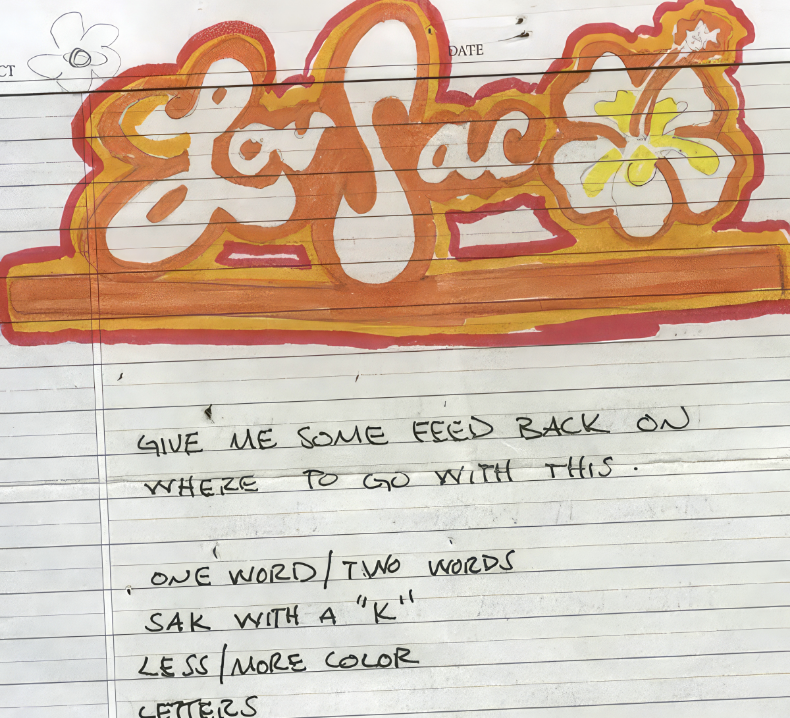 DATE
CT
LovSac
GIVE ME SOME FEED BACK ON
WHERE TO GO WITH THIS.
ONE WORD/TWO WORDS
SAK WITH A "K"
LESS/MORE COLOR
LETTERS